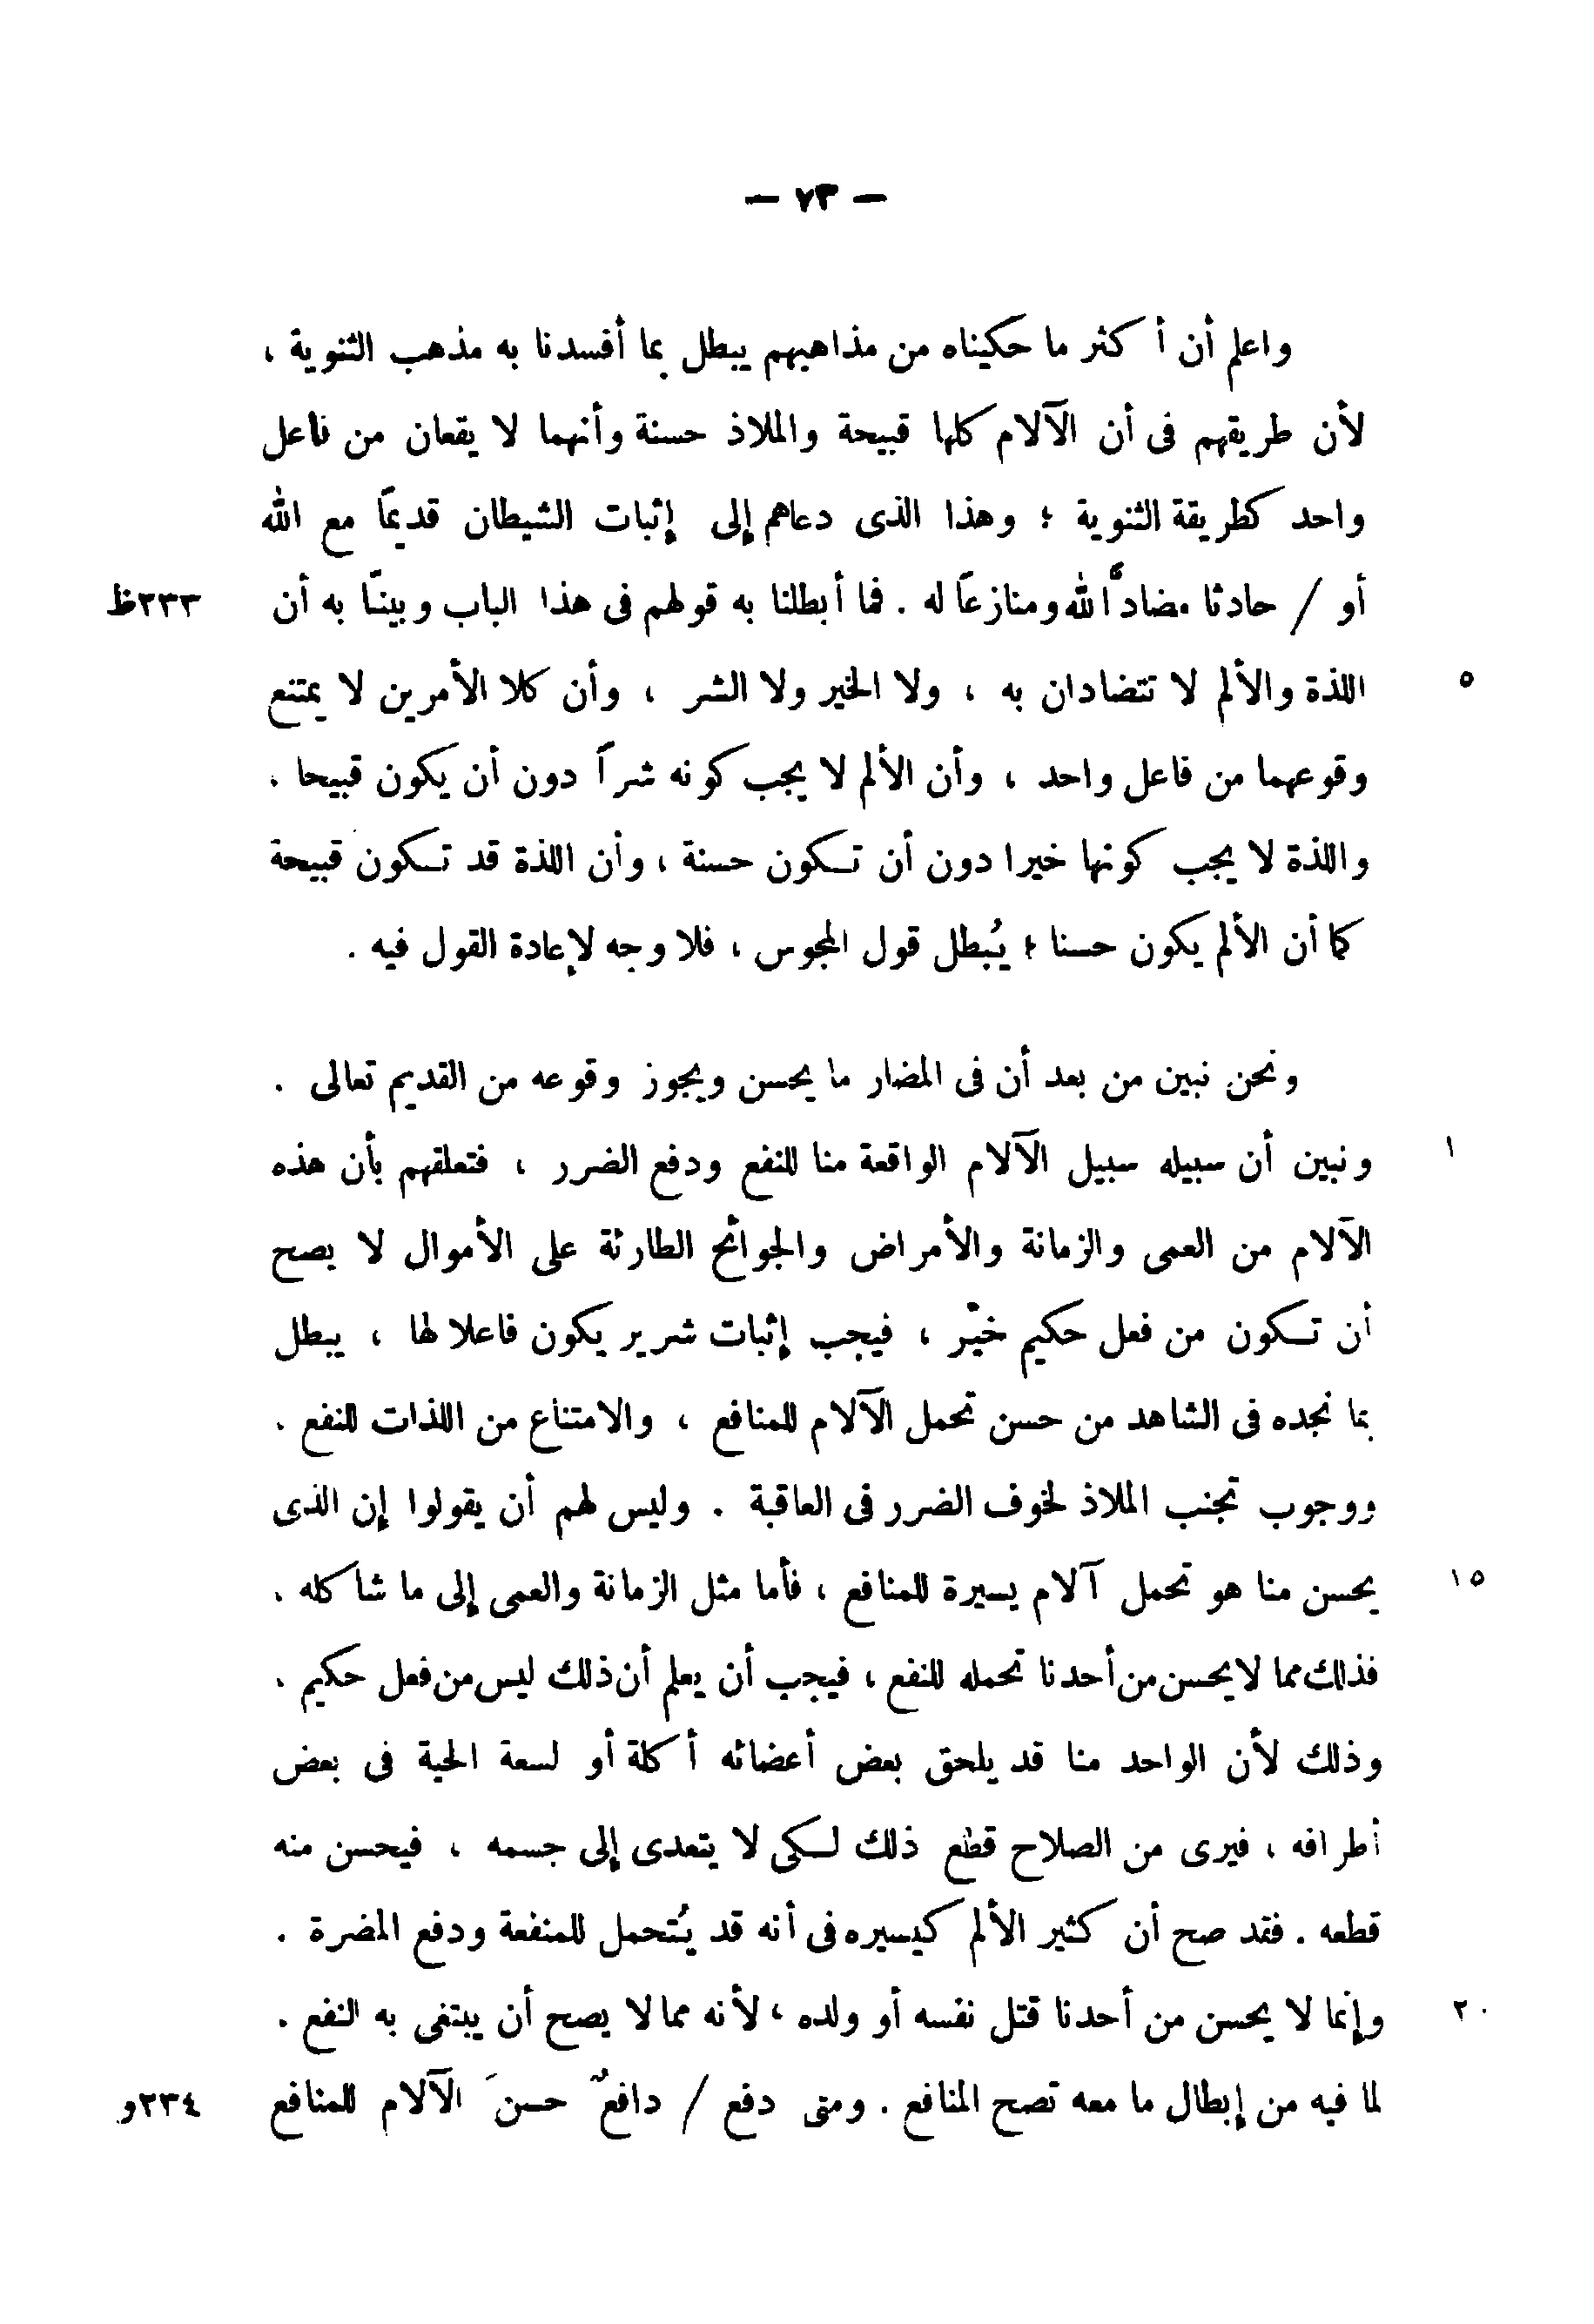 — ٧٣ —
واعلم أن أكثر ما حكيناه من مذاهبهم يبطل بما أفسدنا به مذهب الثنوية ،
لأن طريقهم فى أن الآلام كلها قبيحة والملاذ حسنة وأنهما لا يقعان من فاعل
واحد كطريقة الثنوية ؛ وهذا الذى دعاهم إلى إثبات الشيطان قديمًا مع الله
أو / حادثا مضادًّا لله ومنازعًا له . فما أبطلنا به قولهم فى هذا الباب وبينّا به أن ٢٣٣ظ
اللذة والألم لا تتضادان به ، ولا الخير ولا الشر ، وأن كلا الأمرين لا يمتنع ٥
وقوعهما من فاعل واحد ، وأن الألم لا يجب كونه شراً دون أن يكون قبيحا .
واللذة لا يجب كونها خيرا دون أن تكون حسنة ، وأن اللذة قد تكون قبيحة
كما أن الألم يكون حسنا ؛ يُبطل قول المجوس ، فلا وجه لإعادة القول فيه .
ونحن نبين من بعد أن فى المضار ما يحسن ويجوز وقوعه من القديم تعالى .
ونبين أن سبيله سبيل الآلام الواقعة منا للنفع ودفع الضرر ، فتعلقهم بأن هذه ١
الآلام من العمى والزمانة والأمراض والجوائح الطارئة على الأموال لا يصح
أن تكون من فعل حكيم خيّر ، فيجب إثبات شرير يكون فاعلا لها ، يبطل
بما نجده فى الشاهد من حسن تحمل الآلام للمنافع ، والامتناع من اللذات للنفع .
ووجوب تجنب الملاذ لخوف الضرر فى العاقبة . وليس لهم أن يقولوا إن الذى
يحسن منا هو تحمل آلام يسيرة للمنافع ، فأما مثل الزمانة والعمى إلى ما شاكله . ١٥
فذلك مما لا يحسن من أحدنا تحمله للنفع ، فيجب أن يعلم أن ذلك ليس من فعل حكيم .
وذلك لأن الواحد منا قد يلحق بعض أعضائه أكلة أو لسعة الحية فى بعض
أطرافه ، فيرى من الصلاح قطع ذلك لكى لا يتعدى إلى جسمه ، فيحسن منه
قطعه . فقد صح أن كثير الألم كيسيره فى أنه قد يُتحمل للمنفعة ودفع المضرة .
وإنما لا يحسن من أحدنا قتل نفسه أو ولده ، لأنه مما لا يصح أن يبتغى به النفع . ٢٠
لما فيه من إبطال ما معه تصح المنافع . ومتى دفع / دافعٌ حسنَ الآلام للمنافع ٢٣٤و